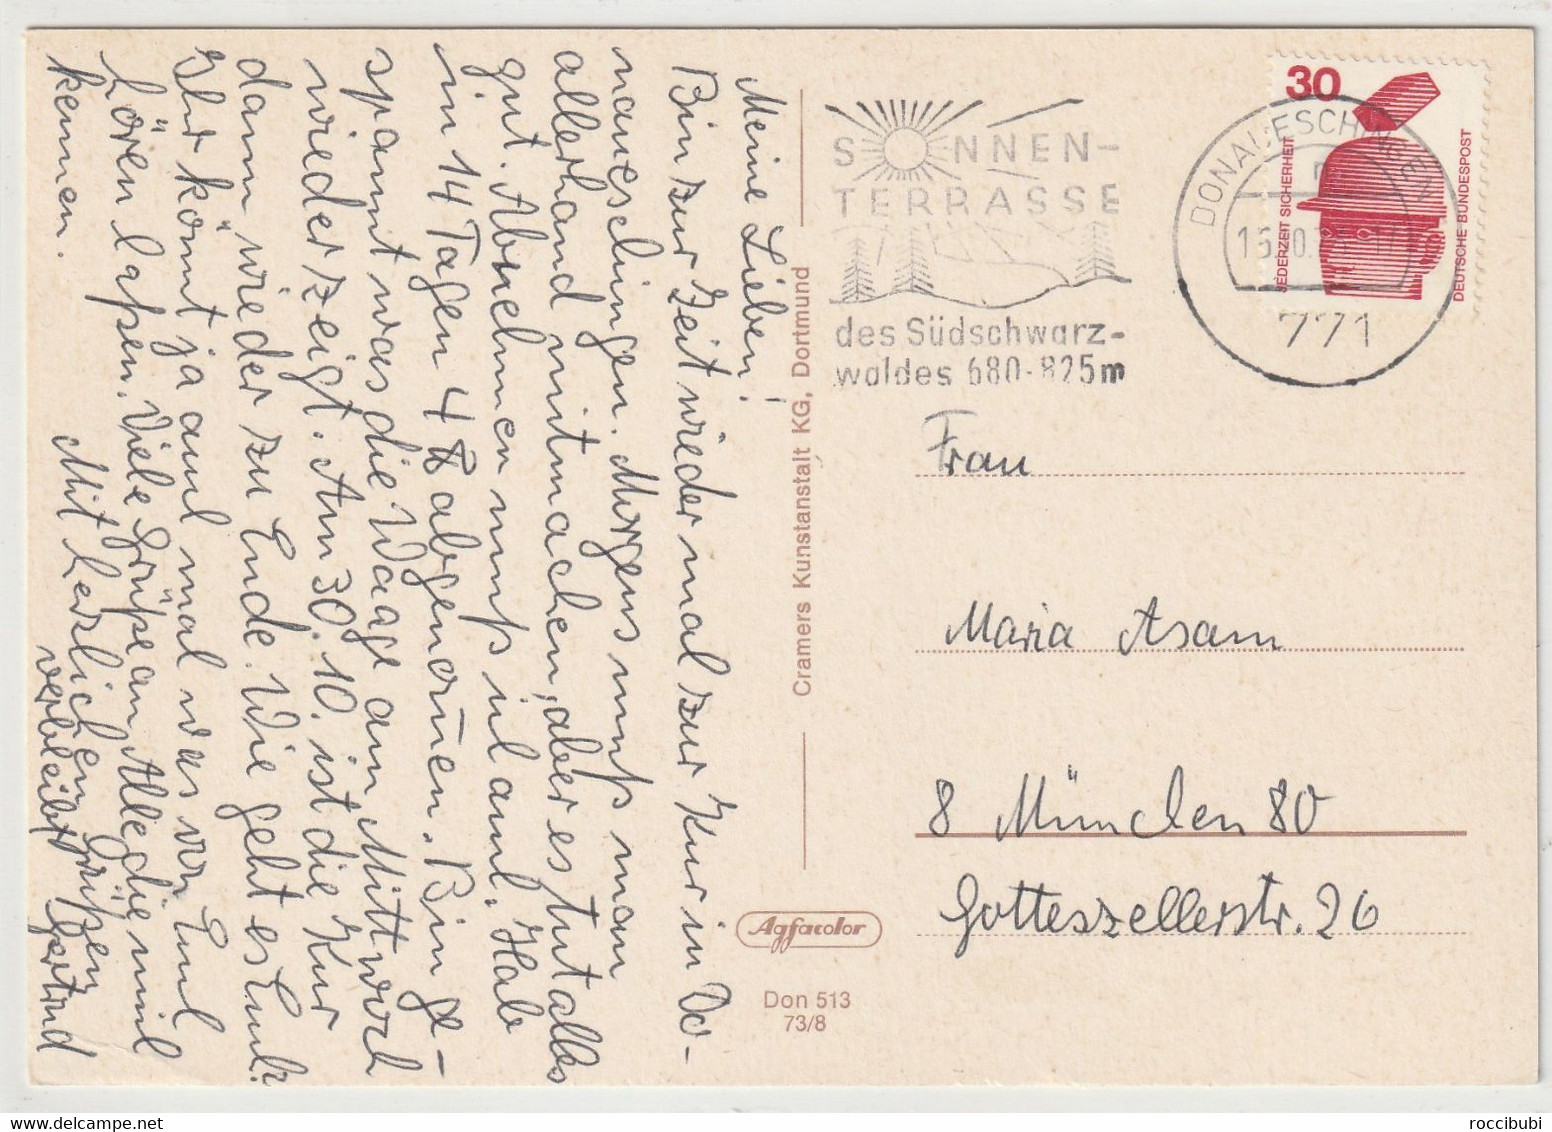 Meine Lieben!
Bin zur Zeit wieder mal zur Kur in Do-
naueschingen. Morgens muß man
allerhand mitmachen, aber es tut alles
gut. Abnehmen muß ich auch. Habe
in 14 Tagen 4 ℔ abgenomen. Bin ge-
spannt was die Waage am Mittwoch
wieder zeigt. Am 30. 10. ist die Kur
dann wieder zu Ende. Wie geht es Euch.
Ihr könnt ja auch mal was von Euch
hören laßen. Viele Grüße an Alle die mich
kennen.
Mit herzlichen Grüßen
verbleibt Gertrud
Cramers Kunstanstalt KG, Dortmund
Agfacolor
Don 513
73/8
SONNEN-
TERRASSE
des Südschwarz-
waldes 680-825m
DONAUESCHINGEN
771
30
JEDERZEIT SICHERHEIT
DEUTSCHE BUNDESPOST
Frau
Maria Asam
8 München 80
Gotteszellerstr. 26
roccibubi